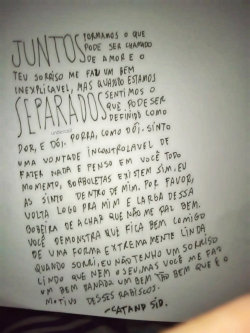 JUNTOS FORMAMOS O QUE
PODE SER CHAMADO
DE AMOR E O
TEU SORRISO ME FAZ UM BEM
INEXPLICAVEL, MAS QUANDO ESTAMOS
SEPARADOS SENTIMOS O
QUE PODE SER
DEFINIDO COMO
DOR, E DÓI. PORRA, COMO DÓI. SINTO
UMA VONTADE INCONTROLAVEL DE
FAZER NADA E PENSO EM VOCÊ TODO
MOMENTO, BORBOLETAS EXISTEM SIM. EU
AS SINTO DENTRO DE MIM. POR FAVOR,
VOLTA LOGO PRA MIM E LARGA DESSA
BOBEIRA DE ACHAR QUE NÃO ME FAZ BEM.
VOCÊ DEMONSTRA QUE FICA BEM COMIGO
DE UMA FORMA EXTREMAMENTE LINDA
QUANDO SORRI, EU NÃO TENHO UM SORRISO
LINDO QUE NEM O SEU, MAS VOCÊ ME FAZ
UM BEM DANADA UM BEM TÃO BEM QUE É O
MOTIVO DESSES RABISCOS.